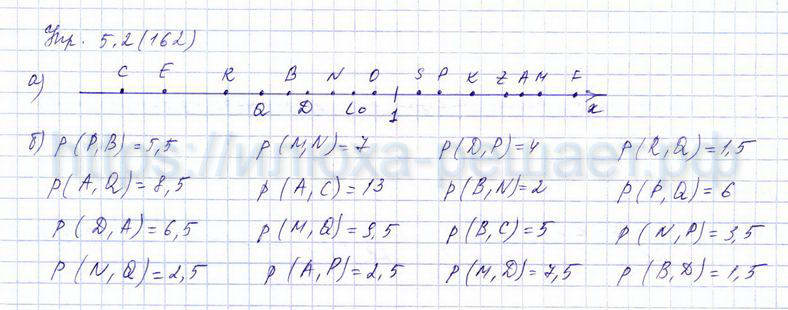 Упр. 5.2(162)
а) C E R B N O S P K Z A M F
Q D L 0 1 x
б) ρ(P,B)=5,5 ρ(M,N)=7 ρ(D,P)=4 ρ(R,Q)=1,5
ρ(A,Q)=8,5 ρ(A,C)=13 ρ(B,N)=2 ρ(P,Q)=6
ρ(D,A)=6,5 ρ(M,Q)=9,5 ρ(B,C)=5 ρ(N,P)=3,5
ρ(N,Q)=2,5 ρ(A,P)=2,5 ρ(M,D)=7,5 ρ(B,D)=1,5